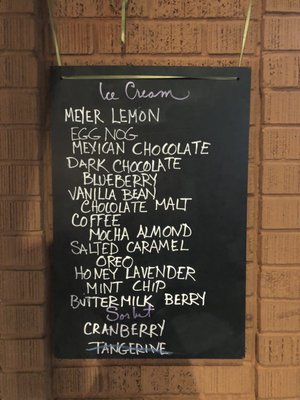 Ice Cream
MEYER LEMON
EGG NOG
MEXICAN CHOCOLATE
DARK CHOCOLATE
BLUEBERRY
VANILLA BEAN
CHOCOLATE MALT
COFFEE
MOCHA ALMOND
SALTED CARAMEL
OREO
HONEY LAVENDER
MINT CHIP
BUTTERMILK BERRY
Sorbet
CRANBERRY
TANGERINE